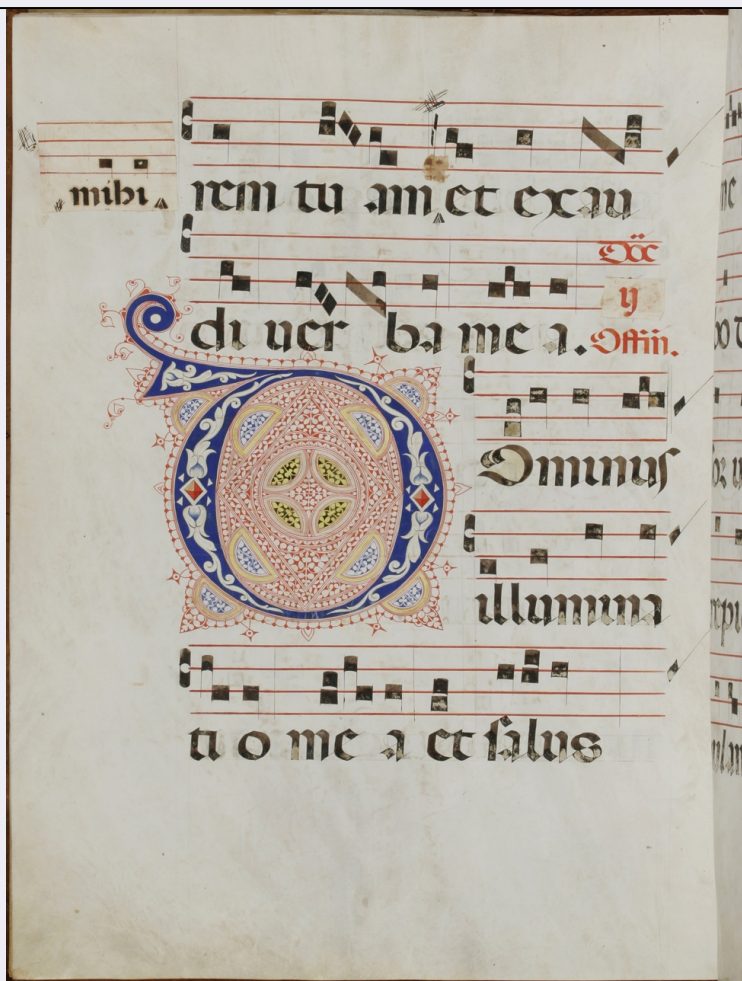 mihi
rem tu am et exau
di ver ba me a.
Offin.
Dominus
illumina
ti o me a et salus